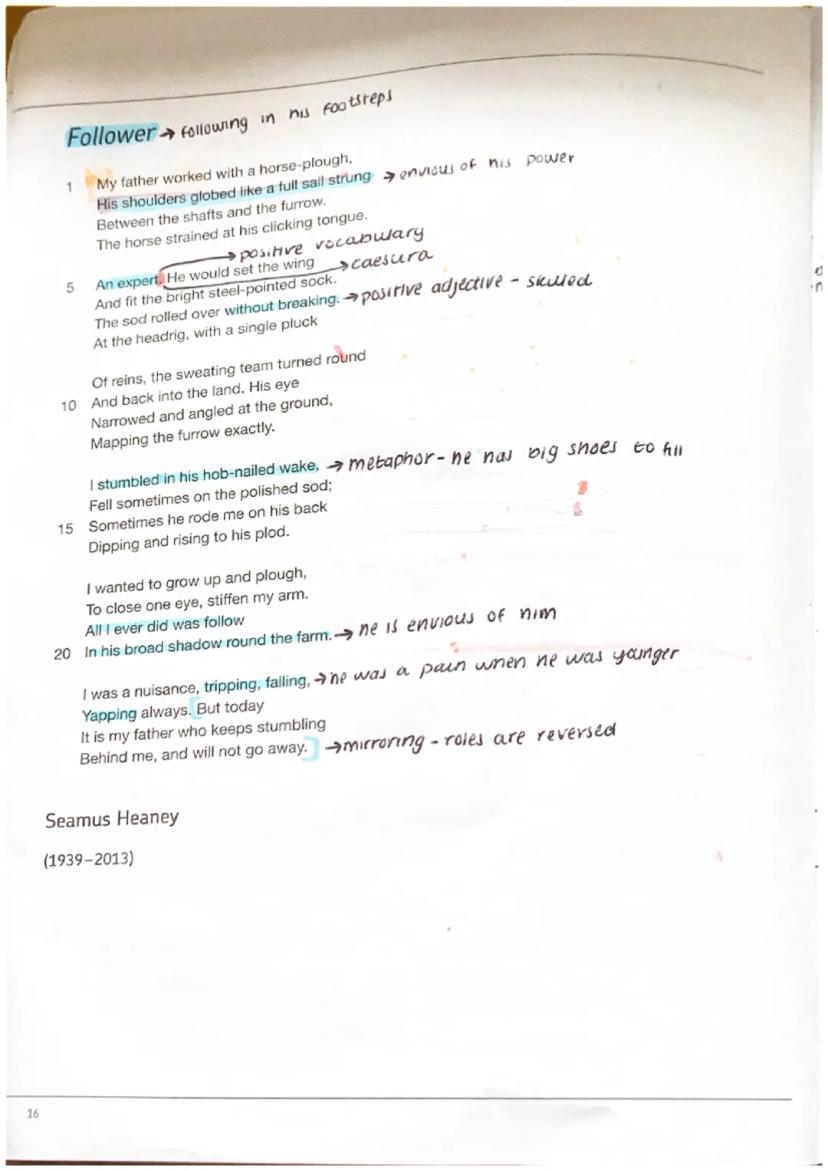 Follower → following in his footsteps
1 My father worked with a horse-plough,
His shoulders globed like a full sail strung → envious of his power
Between the shafts and the furrow.
The horse strained at his clicking tongue.
→ positive vocabulary
5 An expert. He would set the wing → caesura
And fit the bright steel-pointed sock.
The sod rolled over without breaking. → positive adjective - skilled
At the headrig, with a single pluck
Of reins, the sweating team turned round
10 And back into the land. His eye
Narrowed and angled at the ground,
Mapping the furrow exactly.
I stumbled in his hob-nailed wake, → metaphor - he has big shoes to fill
Fell sometimes on the polished sod;
15 Sometimes he rode me on his back
Dipping and rising to his plod.
I wanted to grow up and plough,
To close one eye, stiffen my arm.
All I ever did was follow
20 In his broad shadow round the farm. → he is envious of him
I was a nuisance, tripping, falling, → he was a pain when he was younger
Yapping always. But today
It is my father who keeps stumbling
Behind me, and will not go away. → mirroring - roles are reversed
Seamus Heaney
(1939–2013)
16